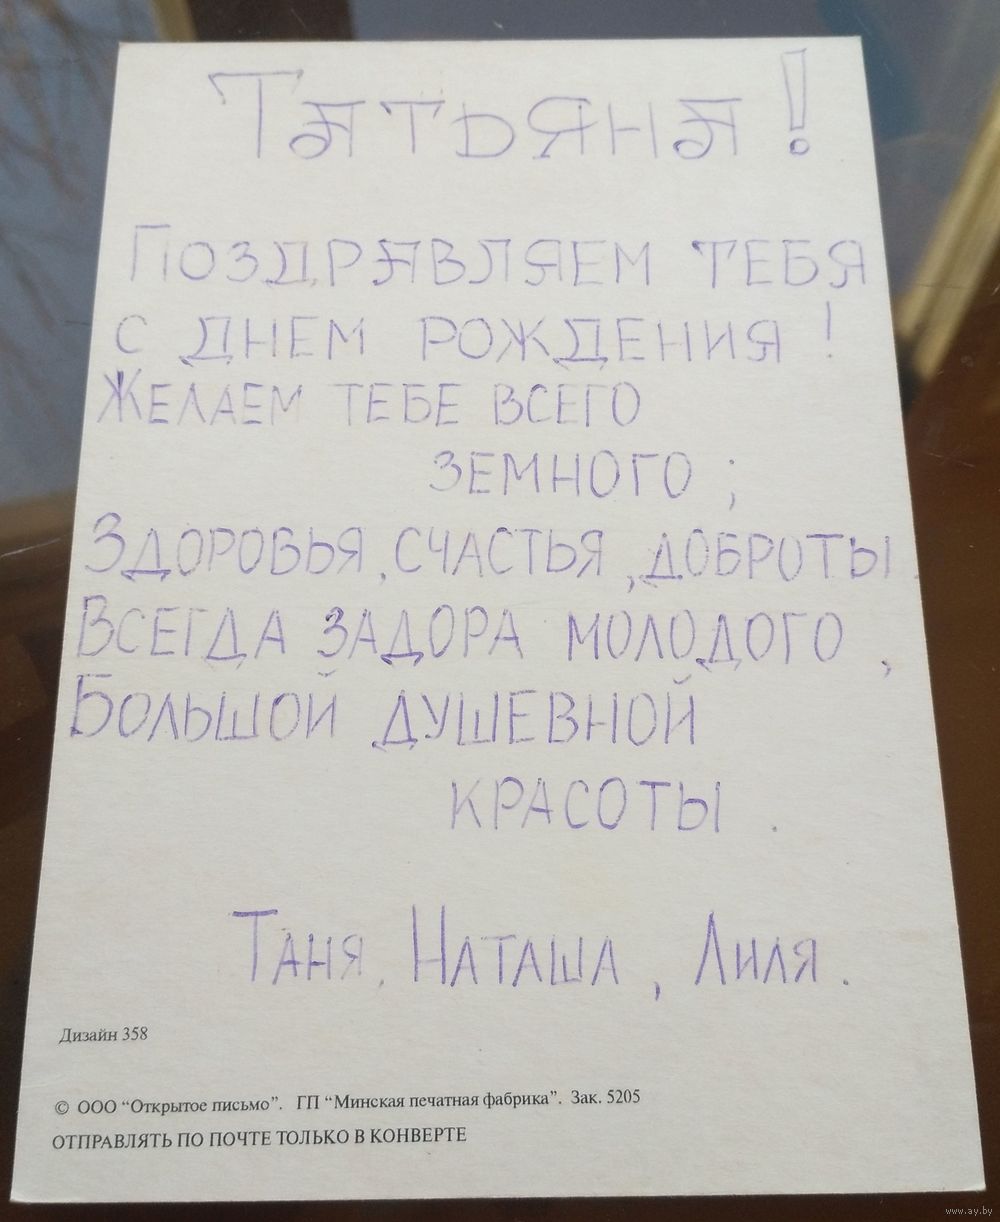 Татьяна!
Поздравляем тебя
с днем рождения!
Желаем тебе всего
земного;
Здоровья, счастья, доброты.
Всегда задора молодого,
Большой душевной
красоты.
Таня, Наташа, Лиля.
Дизайн 358
© ООО “Открытое письмо”. ГП “Минская печатная фабрика”. Зак. 5205
ОТПРАВЛЯТЬ ПО ПОЧТЕ ТОЛЬКО В КОНВЕРТЕ
www.ay.by